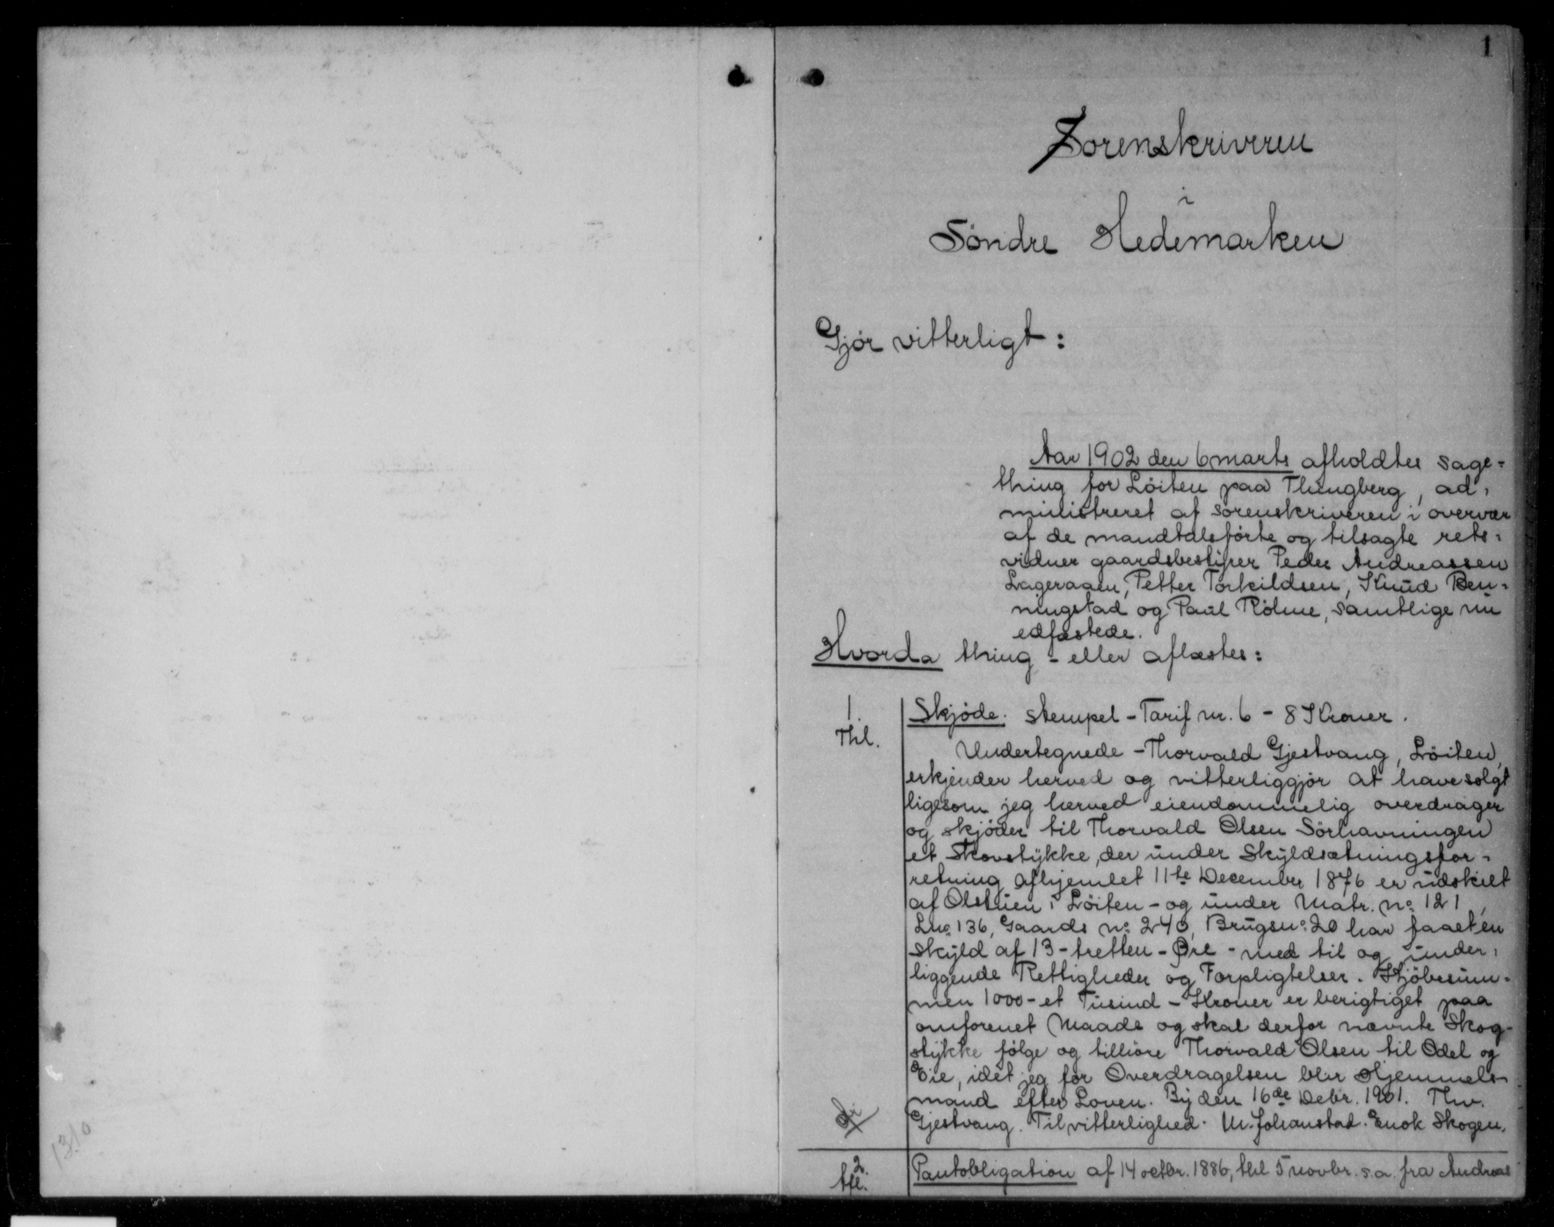 1
Sorenskriveren
i
Söndre Hedemarken
Gjør vitterligt:
Aar 1902 den 6 marts afholdtes sage-
thing for Löiten paa Thingberg, ad-
ministreret af sorenskriveren i overvær
af de mandtalsförte og tilsagte rets-
vidner gaardsbestyrer Peder Andreassen
Lageraaen, Petter Torkildsen, Knud Ben-
ningstad og Paul Rölme, samtlige nu
edfæstede.
Hvorda thing - eller aflæstes:
1.
Thl.
Skjöde. stempel - Tarif nr. 6 - 8 Kroner.
Undertegnede - Thorvald Gjestvang, Löiten,
erkjender herved og vitterliggjör at have solgt
ligesom jeg herved eiendommelig overdrager
og skjöder til Thorvald Olsen Sörhavningen
et Skovstykke, der under Skyldsætningsfor-
retning afhjemlet 11te December 1876 er udskilt
af Olstuen i Löiten - og under Matr. no. 121,
Lno. 136, Gaards no. 240, Brugsno. 20 har faaet en
skyld af 13 - tretten - Øre - med til og under-
liggende Rettigheder og Forpligtelser. Kjöbesum-
men 1000 - et Tusind - Kroner er berigtiget paa
omforenet Maade og skal derfor nævnte Skog-
stykke følge og tilhöre Thorvald Olsen til Odel og
Eie, idet jeg for Overdragelsen blir Hjemmels-
mand efter Loven. By den 16de Decbr. 1901. Thv.
Gjestvang. Til vitterlighed. M. Johanstad. Enok Skogen.
2.
tgl.
Pantobligation af 14 octbr. 1886, thl 5 novbr. s.a. fra Andreas
1310